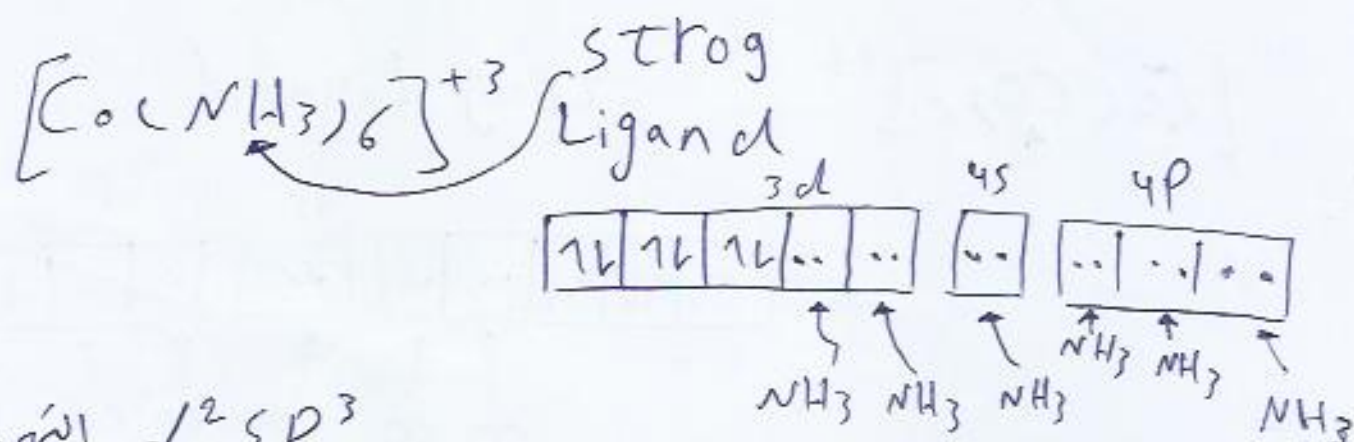 [Co(NH3)6]+3
strog
Ligand
3d 4s 4P
1L 1L 1L .. .. .. .. .. ..
NH3 NH3 NH3 NH3 NH3 NH3
d2SP3